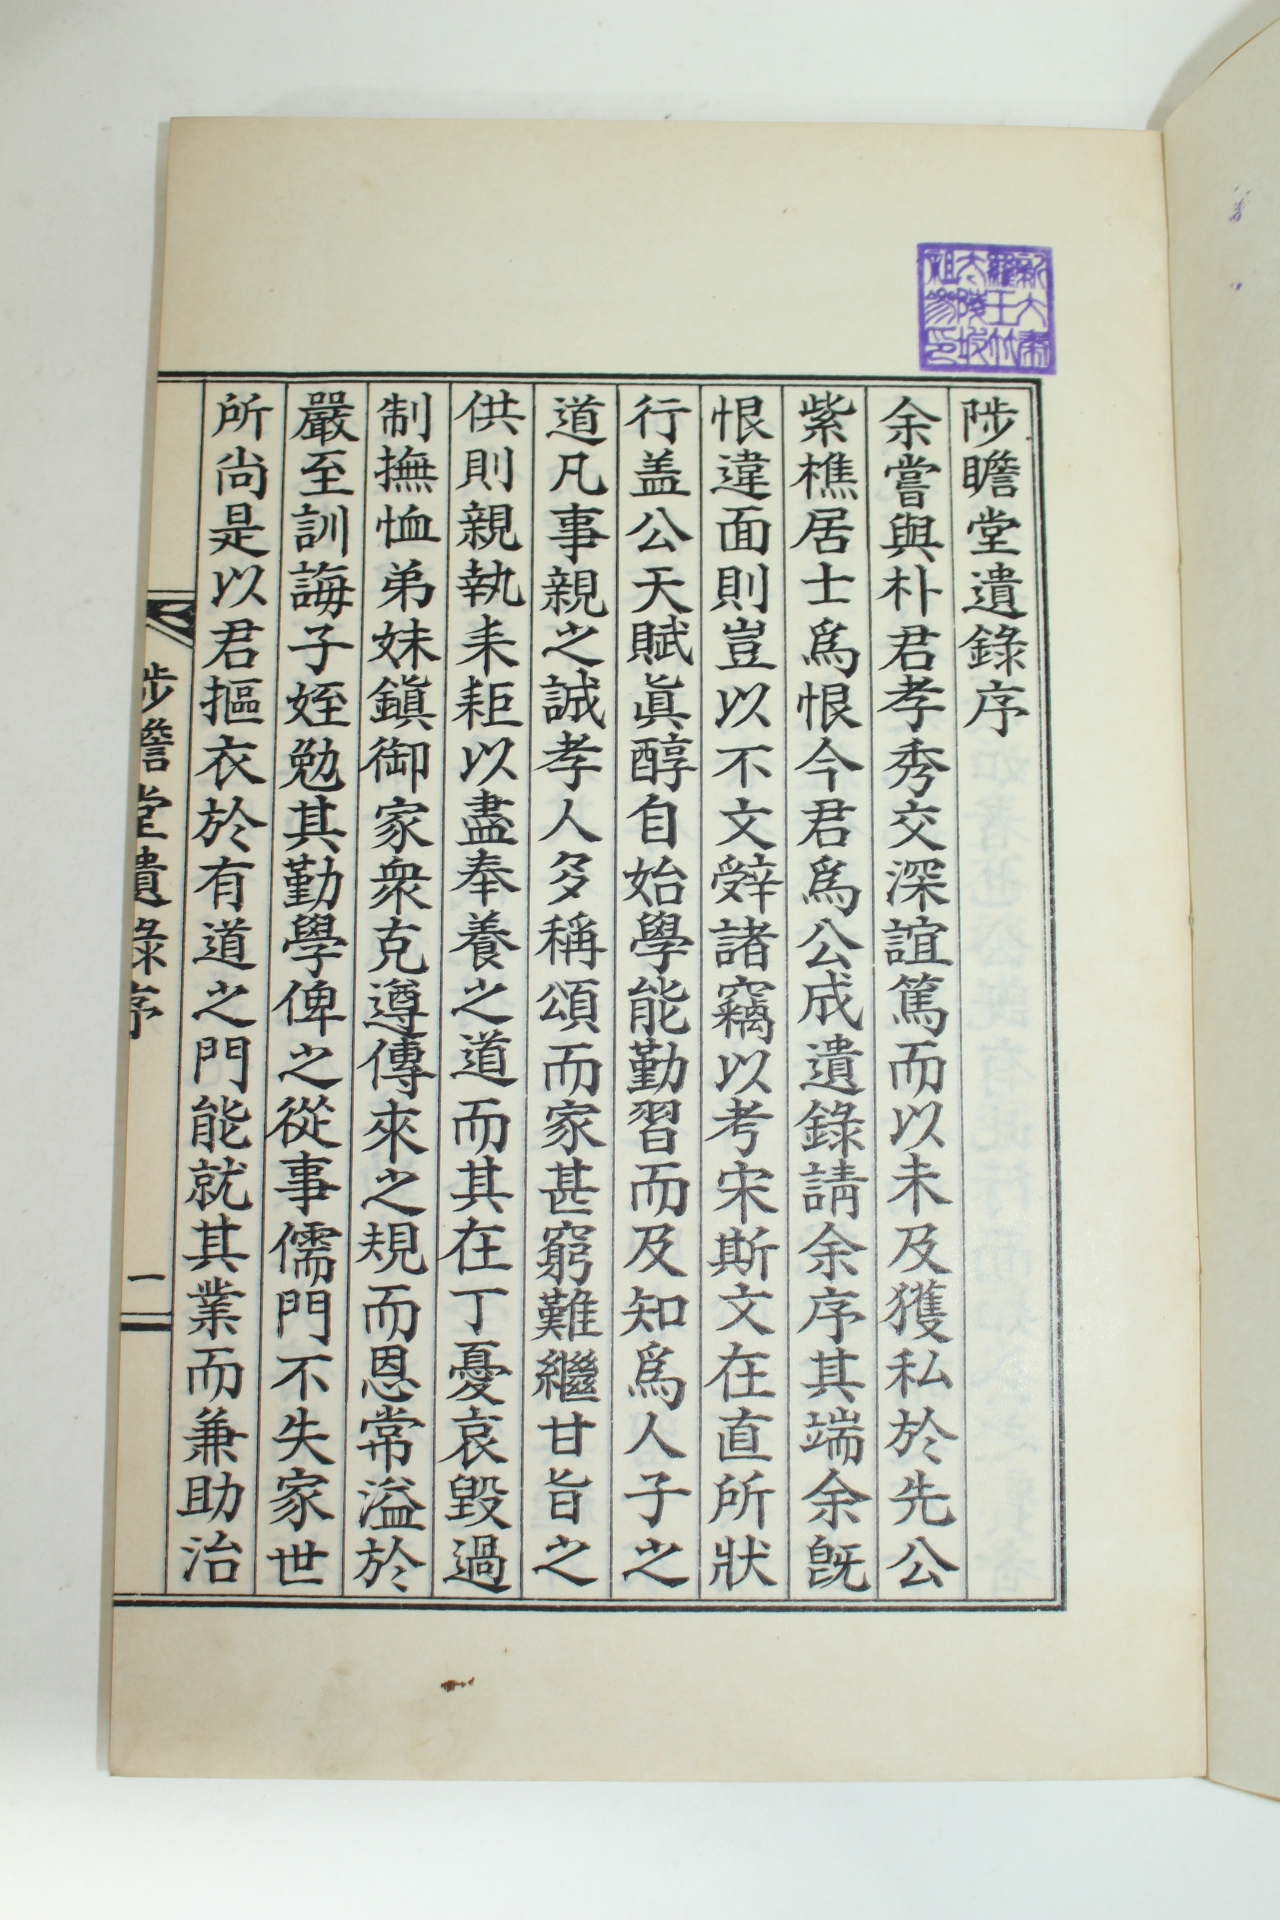 陟瞻堂遺錄序
余嘗與朴君孝秀交深誼篤而以未及獲私於先公
紫樵居士爲恨今君爲公成遺錄請余序其端余旣
恨違面則豈以不文辭諸竊以考宋斯文在直所狀
行盖公天賦眞醇自始學能勤習而及知爲人子之
道凡事親之誠孝人多稱頌而家甚窮難繼甘旨之
供則親執耒耟以盡奉養之道而其在丁憂哀毀過
制撫恤弟妹鎭御家衆克遵傳來之規而恩常溢於
嚴至訓誨子姪勉其勤學俾之從事儒門不失家世
所尙是以君摳衣於有道之門能就其業而兼助治
陟瞻堂遺錄序
一